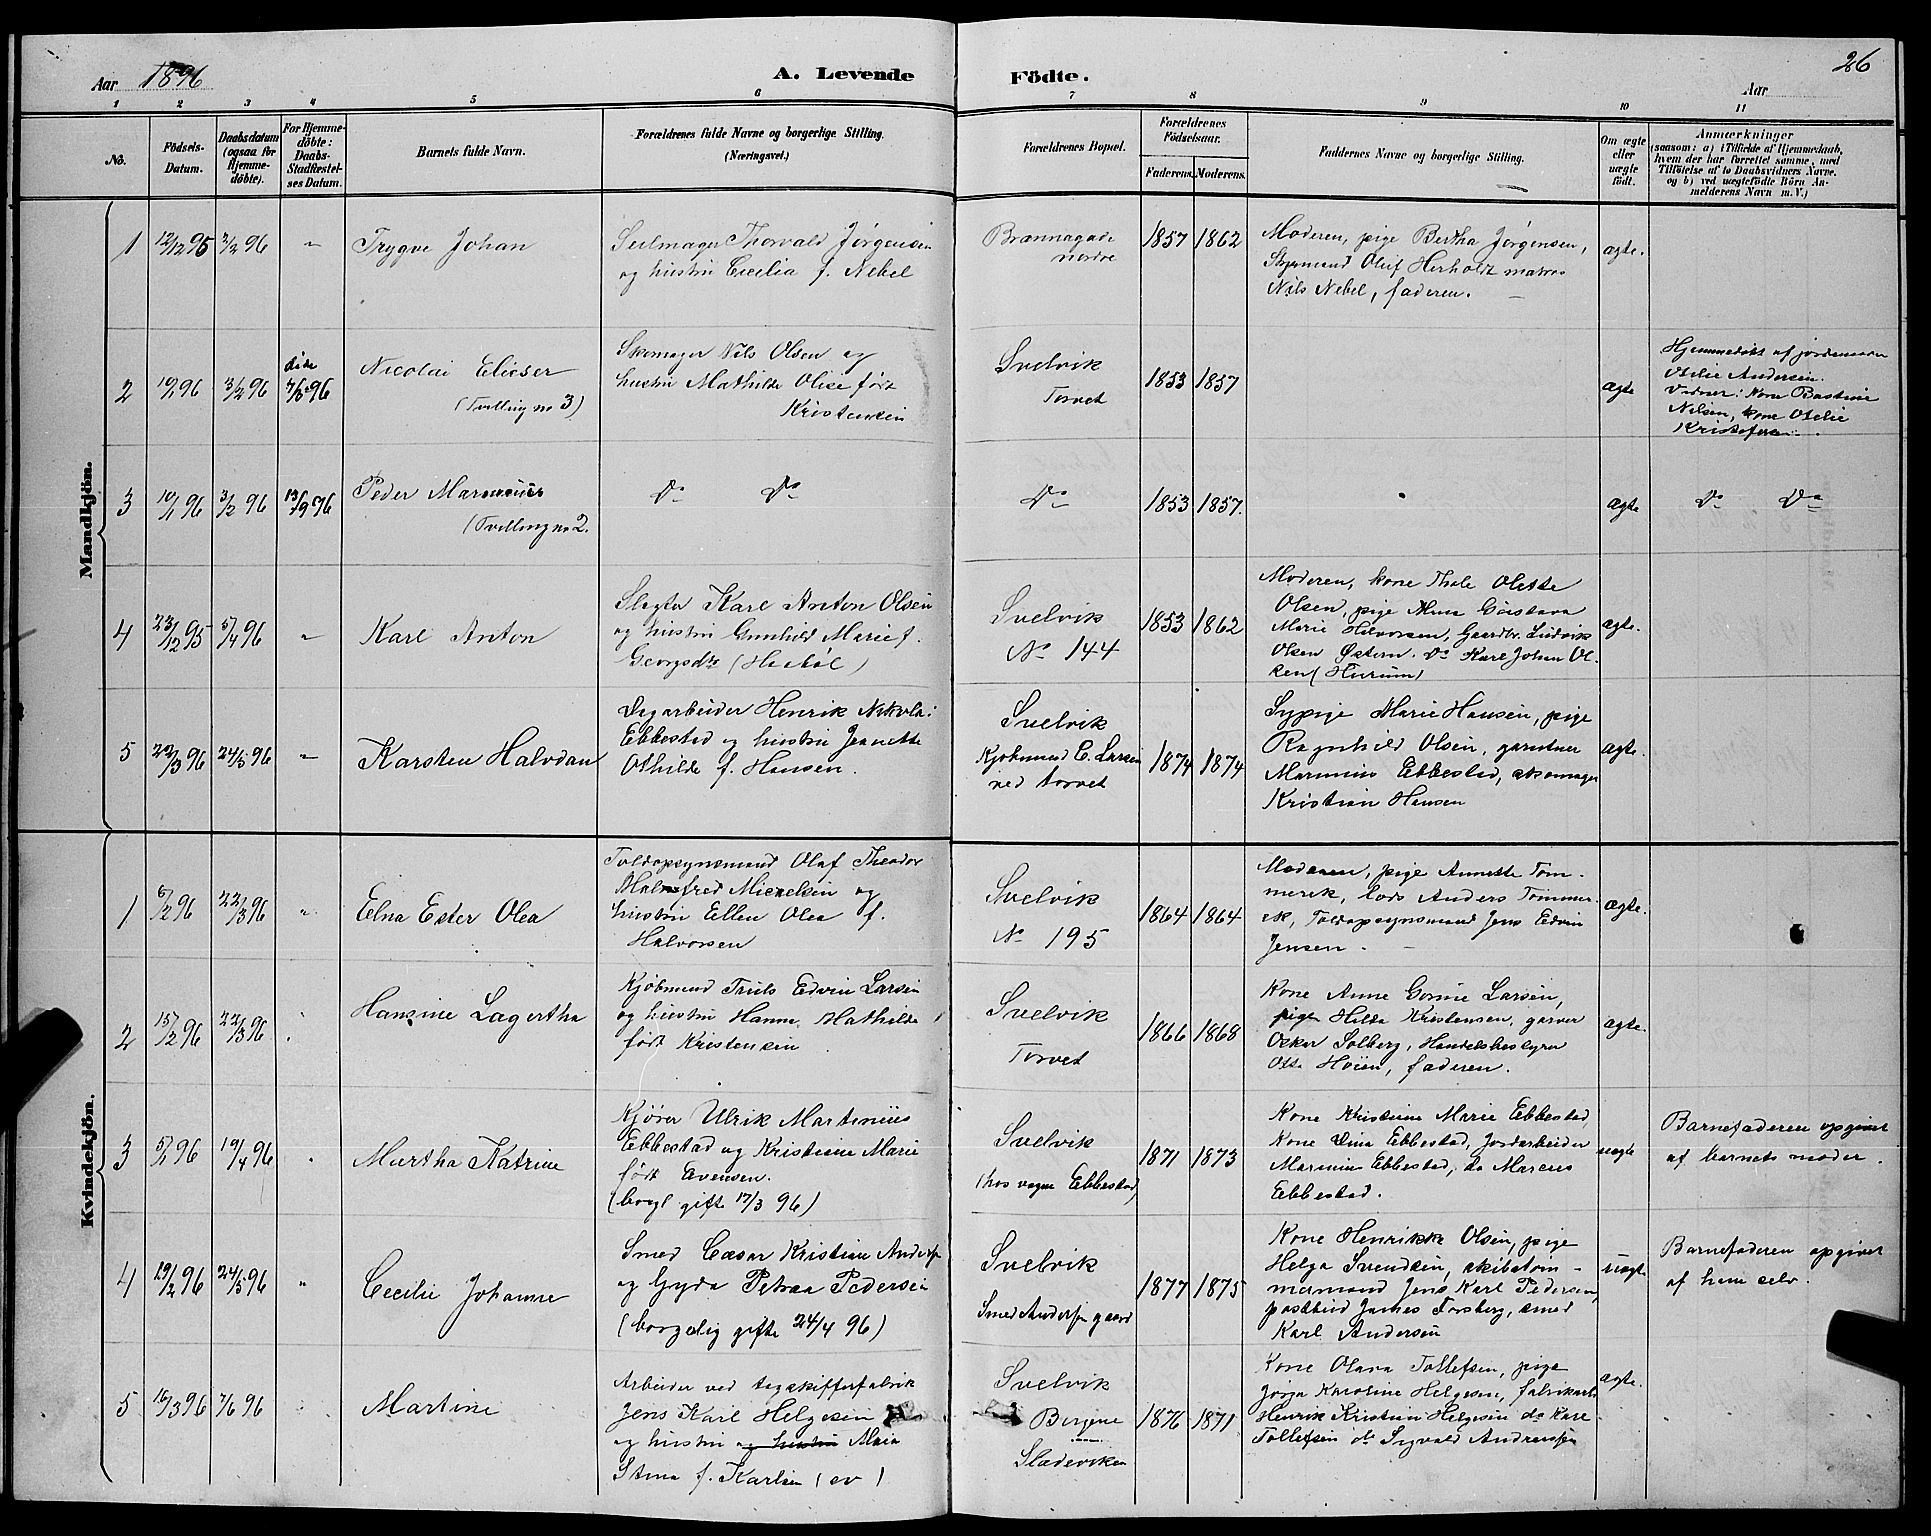 Aar 1896
A. Levende
Födte.
Aar
26
1 2 3 4 5 6 7 8 9 10 11
No.
Födsels-
Datum.
Daabsdatum
(ogsaa for
Hjemme-
döbte).
For Hjemme-
döbte:
Daabs-
Stadfæstel-
ses Datum.
Barnets fulde Navn.
Forældrenes fulde Navne og borgerlige Stilling.
(Næringsvei.)
Forældrenes Bopæl.
Forældrenes
Födselsaar.
Faderens. Moderens.
Faddernes Navne og borgerlige Stilling.
Om ægte
eller
uægte
födt.
Anmærkninger
(saasom: a) i Tilfælde af Hjemmedaab,
hvem der har forrettet samme, med
Tilföielse af to Daabsvidners Navne,
og b) ved uægtefödte Börn An-
melderens Navn m. V.)
Mandkjön.
1
12/12 95
2/2 96
"
Trygve Johan
Seilmager Thorvald Jørgensen
og hustru Cecilia f. Nebel
Brænnagade
nordre
1857
1862
Moderen, pige Bertha Jørgensen,
Styrmand Oluf Herholdt matros
Nils Nebel, faderen.
ægte.
2
10/1 96
3/2 96
døde
7/6 96
Nicolai Elieser
(Tvilling no 3)
Skomager Nils Olsen og
hustru Mathilde Olise født
Kristensen
Svelvik
Torvet
1853
1857
ægte
Hjemmedøbt af jordemoder
Otelie Andersen.
Vidner: Kone Bastine
Nilsen, kone Otelie
3
10/1 96
3/2 96
13/9 96
Peder Marenius
(Tvilling no 2.
Do Do
Do
1853
1857.
ægte
Do Do
4
23/12 95
5/4 96
"
Karl Anton
Slagter Karl Anton Olsen
og hustru Gunhild Marie f.
Georgsdtr
Svelvik
No 144
1853
1862
Moderen, kone Thale Olette
Olsen, pige Anna Gustava
Marie Halvorsen, Gaardbr. Ludvik
Olsen Østern. Do Karl Johan Ol-
sen (Hurum)
ægte.
5
22/3 96
24/5 96
"
Karsten Halvdan
Dagarbeider Henrik Nikolai
Ebbestad og hustru Jeanette
Othilde f. Hansen.
Svelvik
Kjøbmand C. Larsen
ved torvet
1874
1874
Sypige Marie Hansen, pige
Ragnhild Olsen, gartner
Marinius Ebbestad, skomager
Kristian Hansen
ægte.
Kvindekjön.
1
6/2 96
22/3 96
"
Edna Ester Olea
Toldopsynsmand Olaf Theodor
Malmfred Micaelsen og
hustru Ellen Olea f.
Halvorsen
Svelvik
No 195
1864
1864
Moderen, pige Annette Tom-
merek, lods Anders Tommer-
ek, Toldopsynsmand Jens Edvin
Jensen.
ægte.
2
15/2 96
22/3 96
"
Hansine Lagertha
Kjøbmand Truls Edvin Larsen
og hustru Hanna Mathilda
født Kristensen
Svelvik
Torvet
1866
1868
Kone Anne Gorine Larsen,
pige Hilda Kristensen, garver
Oskar Solberg, Handelsbestyrer
Otto Høien, faderen.
ægte.
3
5/1 96
19/4 96
"
Martha Katrine
Kjører Ulrik Martinius
Ebbestad og Kristiane Marie
født Evensen.
(borgl gifte 17/3 96)
Svelvik
(hos vogns Ebbestad)
1871
1873
Kone Kristiane Marie Ebbestad,
Kone Lina Ebbestad, Jordarbeider
Marinius Ebbestad, do Marcus
Ebbestad.
uægte
Barnefaderen opgivet
af barnets moder.
4
19/2 96
24/5 96
"
Cecilie Johanne
Smed Cæsar Kristian Anders
og Gyda Petrea Pedersen
(borgerlig gifte 24/4 96)
Svelvik
Smed Anders gaard
1877
1875
Kone Henrikke Olsen, pige
Helga Svendsen, skibstøm-
mermand Jens Karl Pedersen,
postbud James Forsberg, smed
Karl Andersen
uægte
Barnefaderen opgivet
af ham selv.
5
16/3 96
7/6 96
Martine
Arbeider ved tagskifferfabrik
Jens Karl Helgesen
og hustru og hustru Maria
Stina f. Karlsen (sv)
Svelvik
Bergene
Sladeviken
1876
1871
Kone Olava Tollefsen, pige
Jørja Karoline Helgesen, fabrikarb.
Henrik Kristian Helgesen do Karl
Tollefsen do Sigvald Andressen
ægte.